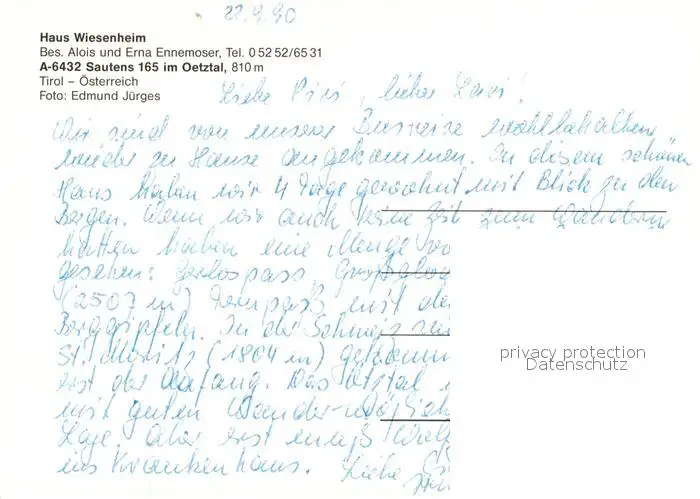 22.9.90
Haus Wiesenheim
Bes. Alois und Erna Ennemoser, Tel. 0 52 52/65 31
A-6432 Sautens 165 im Oetztal, 810 m
Tirol – Österreich
Foto: Edmund Jürges
Liebe , lieber !
Wir sind von unserer Busreise wohlbehalten
wieder zu Hause angekommen. In diesem schönen
Haus haben wir 4 Tage gewohnt mit Blick zu den
Bergen. Wenn wir auch keine Zeit zum Wandern
hatten haben eine Menge
gesehen: Gerlospass,
(2507 m) Fernpaß mit
Berggipfeln. In der Schweiz
St. Moritz (1804 m)
erst der Anfang. Das Ötztal
mit guten
Lage. Aber erst muß
ins Krankenhaus. Liebe
privacy protection
Datenschutz